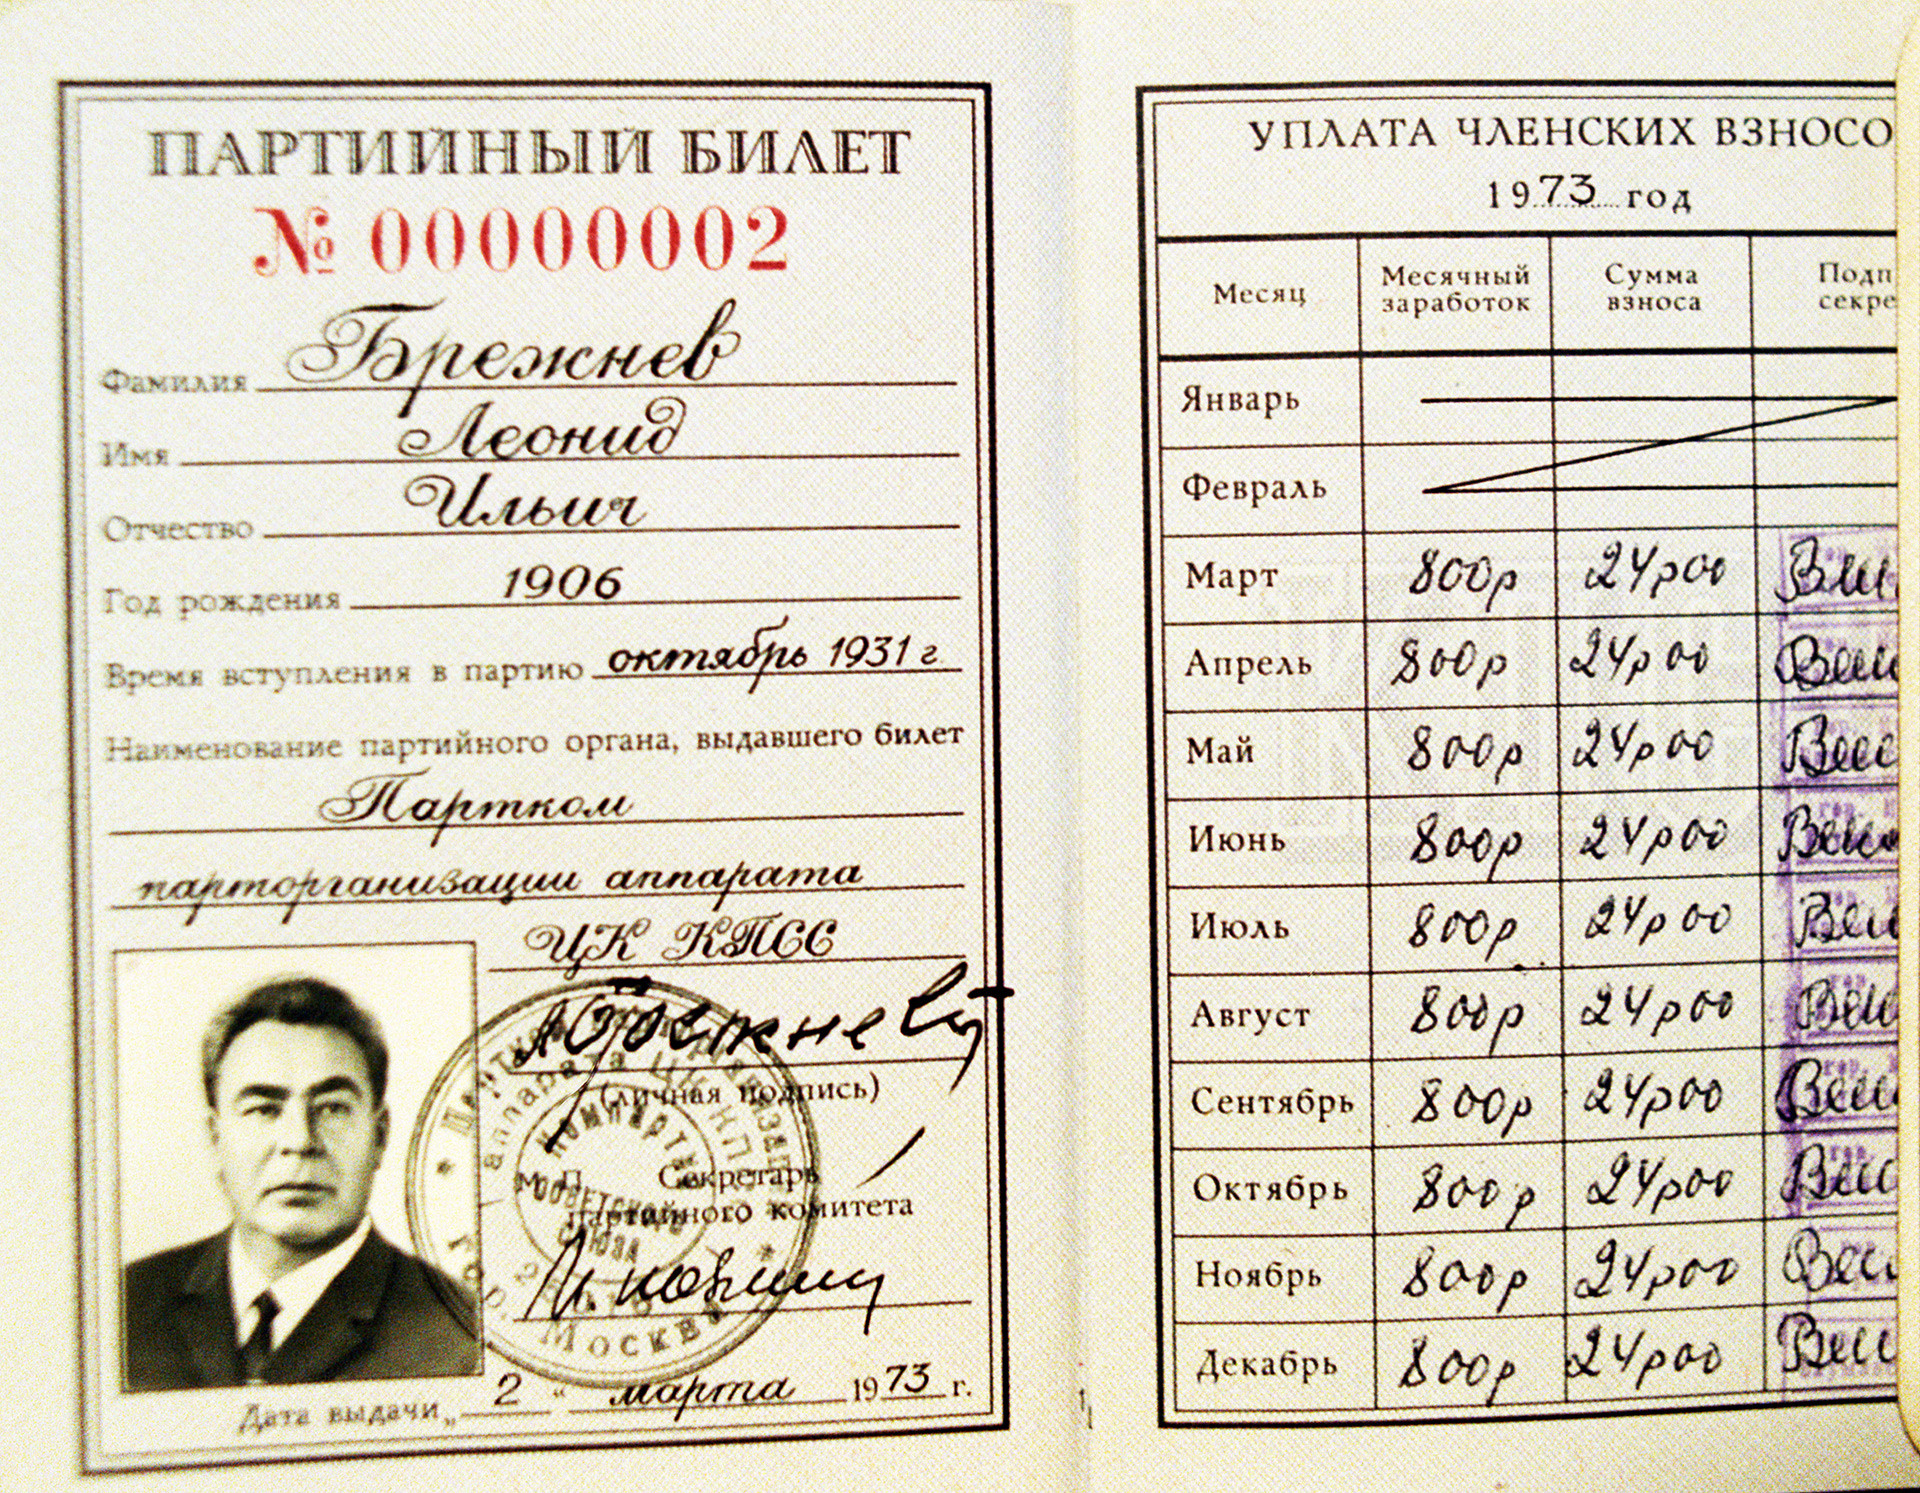 ПАРТИЙНЫЙ БИЛЕТ
№ 00000002
Фамилия Брежнев
Имя Леонид
Отчество Ильич
Год рождения 1906
Время вступления в партию октябрь 1931 г
Наименование партийного органа, выдавшего билет
Партком
парторганизации аппарата
ЦК КПСС
(личная подпись)
М. П. Секретарь
партийного комитета
Дата выдачи „ 2 “ марта 1973 г.
УПЛАТА ЧЛЕНСКИХ ВЗНОСО
1973 год
Месяц Месячный заработок Сумма взноса Подп секре
Январь
Февраль
Март 800р 24р00
Апрель 800р 24р00
Май 800р 24р00
Июнь 800р 24р00
Июль 800р 24р00
Август 800р 24р00
Сентябрь 800р 24р00
Октябрь 800р 24р00
Ноябрь 800р 24р00
Декабрь 800р 24р00